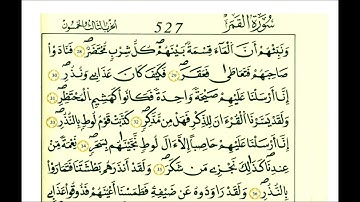 سُورَةُ القَمَرِ 527 الحزب الثالث والخمسون
وَنَبِّئْهُمْ أَنَّ ٱلْمَآءَ قِسْمَةٌۢ بَيْنَهُمْ كُلُّ شِرْبٍ مُّحْتَضَرٌ 28 فَنَادَوْا۟
صَاحِبَهُمْ فَتَعَاطَىٰ فَعَقَرَ 29 فَكَيْفَ كَانَ عَذَابِى وَنُذُرِ 30
إِنَّآ أَرْسَلْنَا عَلَيْهِمْ صَيْحَةً وَٰحِدَةً فَكَانُوا۟ كَهَشِيمِ ٱلْمُحْتَظِرِ 31
وَلَقَدْ يَسَّرْنَا ٱلْقُرْءَانَ لِلذِّكْرِ فَهَلْ مِن مُّدَّكِرٍ 32 كَذَّبَتْ قَوْمُ لُوطٍۭ بِٱلنُّذُرِ 33
إِنَّآ أَرْسَلْنَا عَلَيْهِمْ حَاصِبًا إِلَّآ ءَالَ لُوطٍ نَّجَّيْنَٰهُم بِسَحَرٍ 34 نِّعْمَةً مِّنْ
عِندِنَا كَذَٰلِكَ نَجْزِى مَن شَكَرَ 35 وَلَقَدْ أَنذَرَهُم بَطْشَتَنَا فَتَمَارَوْا۟
بِٱلنُّذُرِ 36 وَلَقَدْ رَٰوَدُوهُ عَن ضَيْفِهِۦ فَطَمَسْنَآ أَعْيُنَهُمْ فَذُوقُوا۟ عَذَابِى